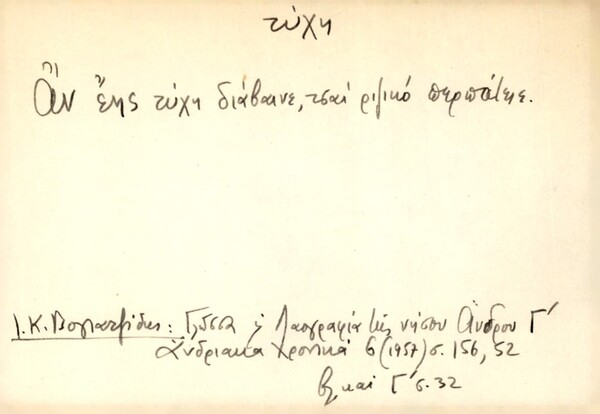 τύχη
Ἂν ἔχῃς τύχη διάβαινε, τσαί ριζικό περπάτειε.
Ι. Κ. Βογιατζίδης: Γλῶσσα & Λαογραφία τῆς νήσου Ἄνδρου Γ΄
Ἀνδριακά Χρονικά 6 (1957) σ. 156, 52
καί Γ΄ σ. 32